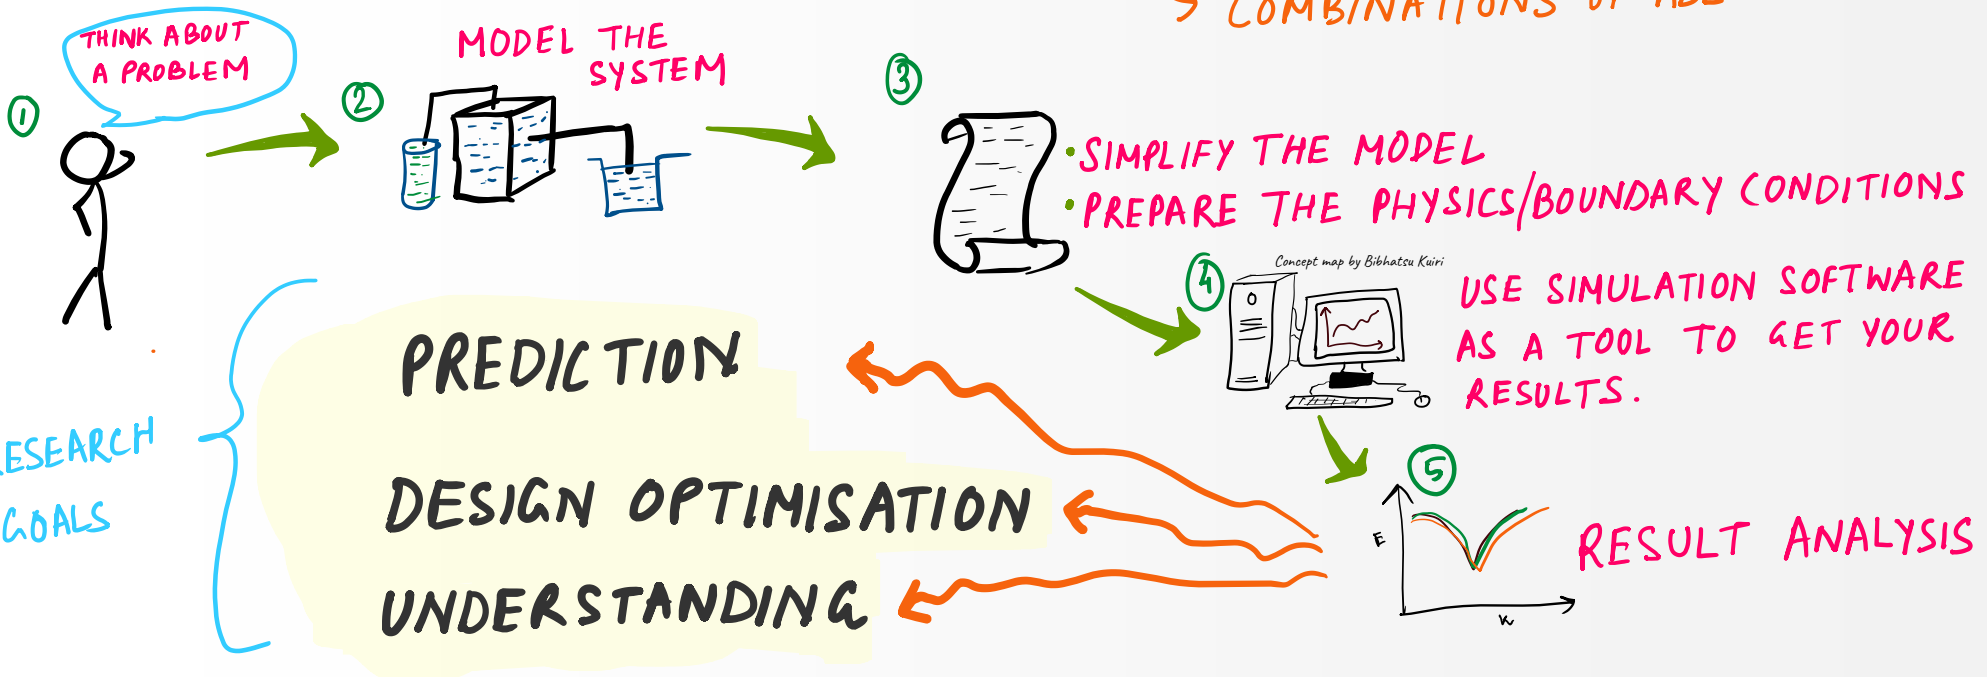 COMBINATIONS OF
THINK ABOUT
A PROBLEM
1
2
MODEL THE
SYSTEM
3
• SIMPLIFY THE MODEL
• PREPARE THE PHYSICS/BOUNDARY CONDITIONS
4
Concept map by Bibhatsu Kuiri
USE SIMULATION SOFTWARE
AS A TOOL TO GET YOUR
RESULTS.
5
E
K
RESULT ANALYSIS
PREDICTION
DESIGN OPTIMISATION
UNDERSTANDING
ESEARCH
GOALS